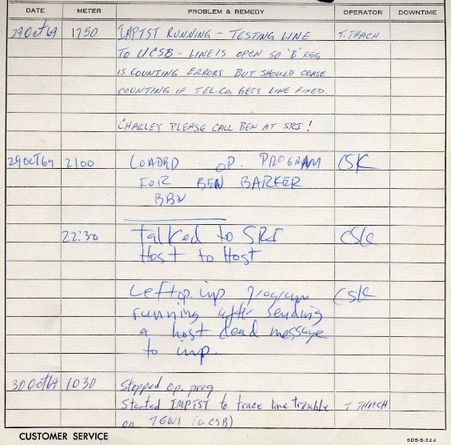 DATE METER PROBLEM & REMEDY OPERATOR DOWNTIME
29 Oct 69 1750 IMPTST RUNNING - TESTING LINE T. THACH
TO UCSB - LINE IS OPEN SO 'B' REG
IS COUNTING ERRORS BUT SHOULD CEASE
COUNTING IF TEL.CO. GETS LINE FIXED.
CHARLEY PLEASE CALL BEN AT SRI!
29 OCT 69 2100 LOADED OP. PROGRAM CSK
FOR BEN BARKER
BBN
22:30 Talked to SRI CSK
Host to Host
Left op. imp program CSK
running after sending
a host dead message
to imp.
30 Oct 69 1030 Stopped op. prog
Started IMPTST to trace line trouble T THACH
on (UCSB)
CUSTOMER SERVICE SDS-S-324